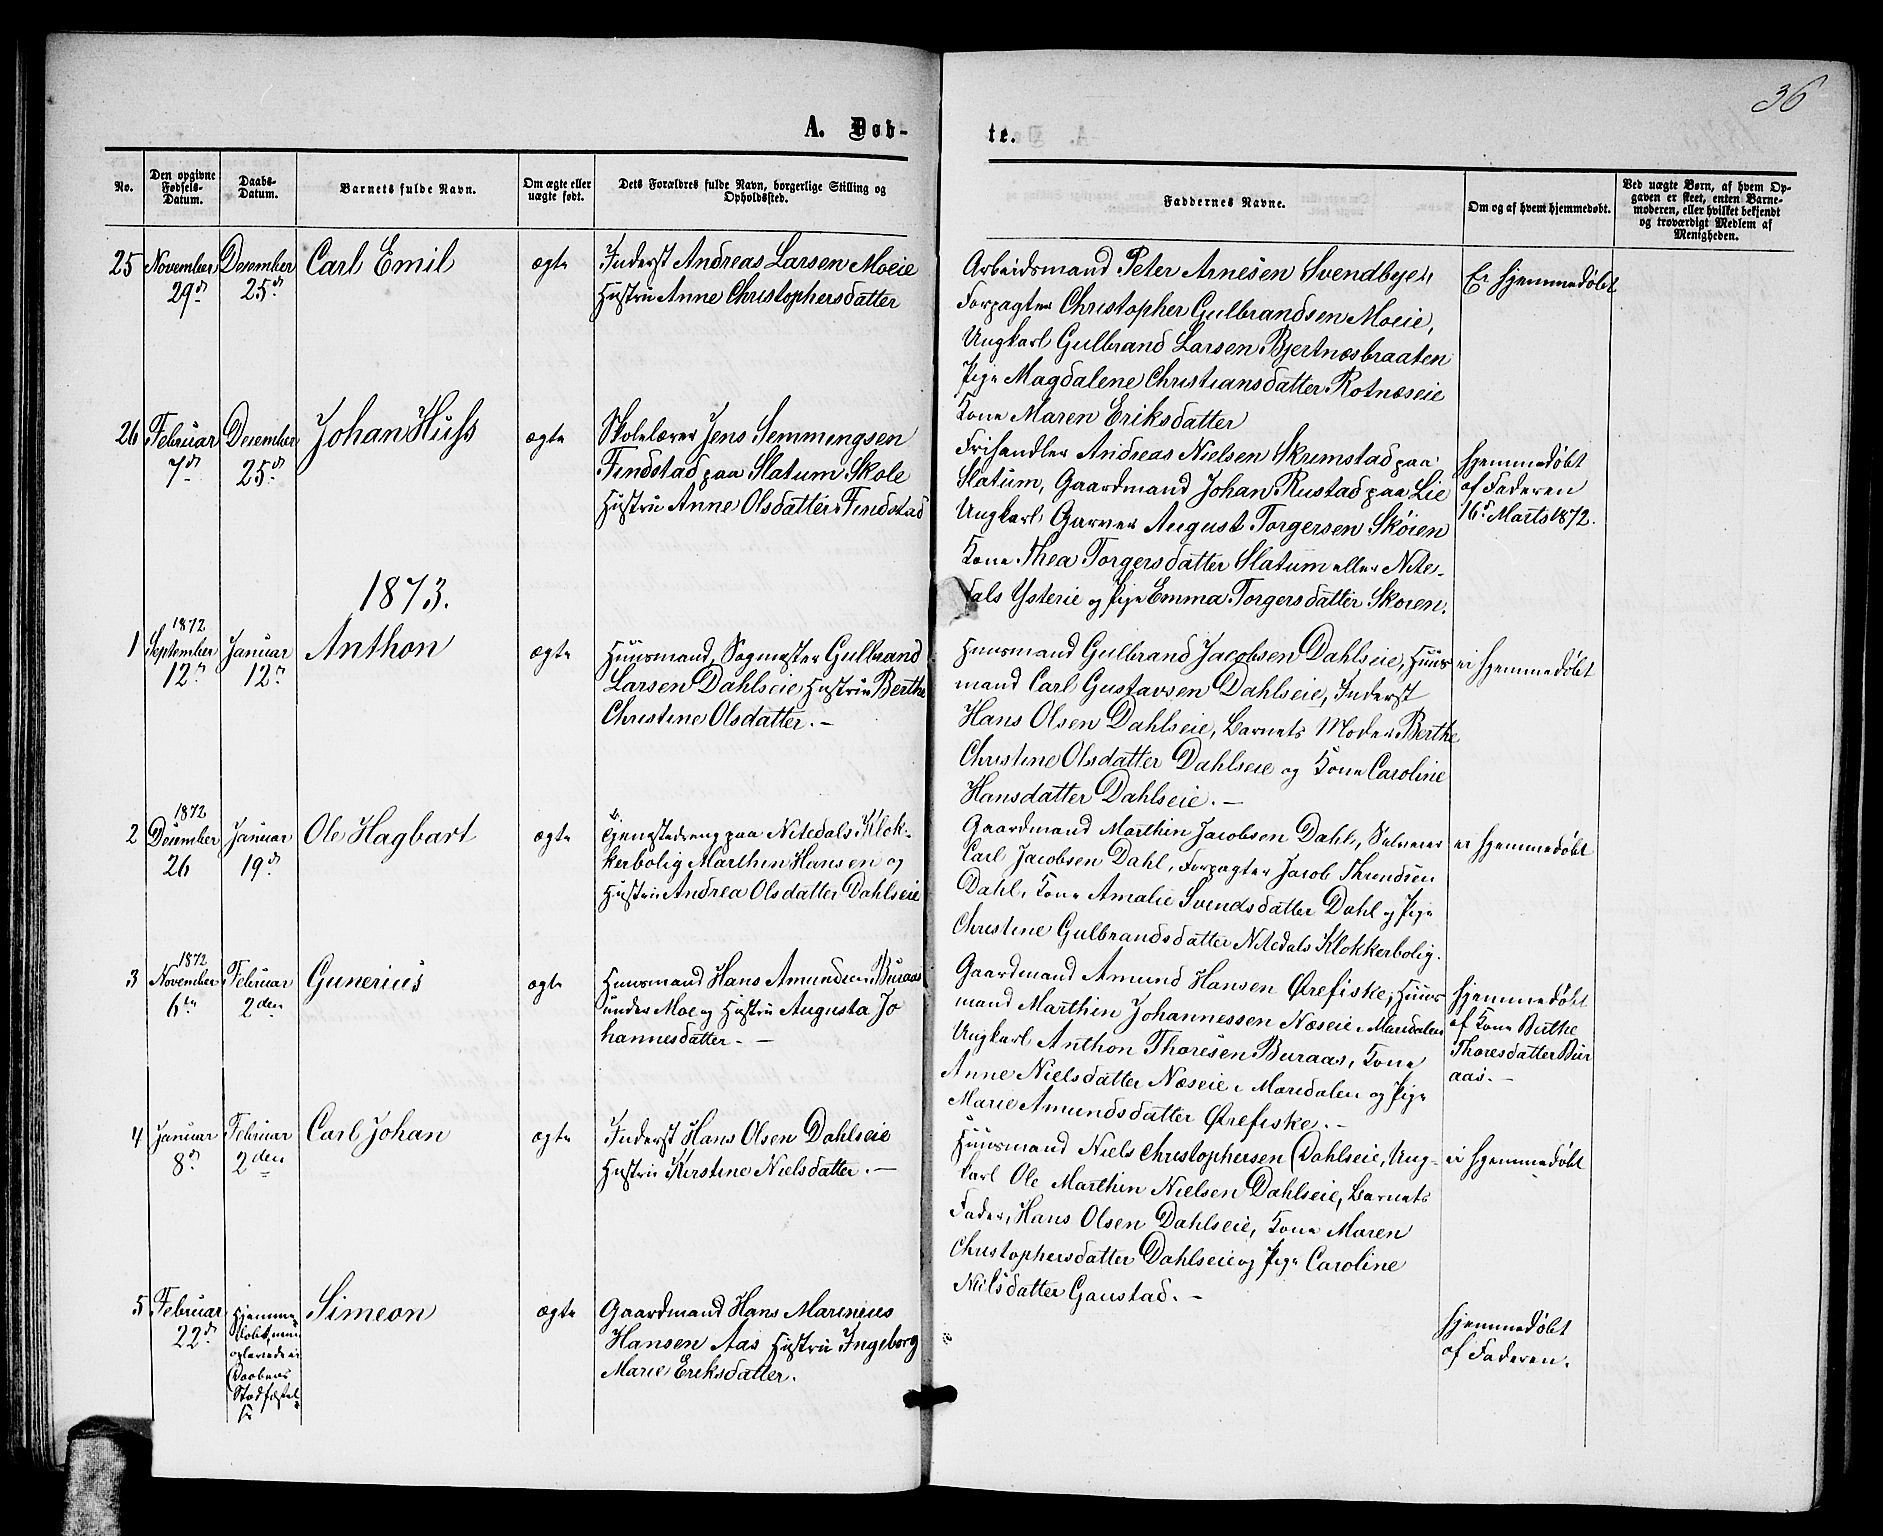 36
A. Døb-
te.
No.
Den opgivne Fødsels-Datum.
Daabs-Datum.
Barnets fulde Navn.
Om ægte eller uægte født.
Dets Forældres fulde Navn, borgerlige Stilling og Opholdssted.
Faddernes Navne.
Om og af hvem hjemmedøbt.
Ved uægte Børn, af hvem Opgaven er skeet, enten Barnemoderen, eller hvilket bekjendt og troværdigt Medlem af Menigheden.
25 November 29d
Desember 25d
Carl Emil
ægte
Inderst Andreas Larsen Moeie
Hustru Anne Christophersdatter
Arbeidsmand Peter Arnesen Svendbyeie
Forpagter Christopher Gulbrandsen Moeie,
Ungkarl Gulbrand Larsen Bjertnæsbraaten
Pige Magdalene Christiansdatter Rotnæseie
Kone Maren Eriksdatter
Ei hjemmedøbt
26 Februar 7d
Desember 25d
Johan Huss
ægte
Skolelærer Jens Semmingsen
Findstad paa Slatum Skole
Hustru Anne Olsdatter Findstad
Frihandler Andreas Nielsen Skrimstad paa
Slatum, Gaardmand Johan Rustad paa Lie
Ungkarl, Garver August Torgersen Skøien
Kone Thea Torgersdatter Slatum eller Nite-
dals Ysterie og Pige Emma Torgersdatter Skoien.
hjemmedøbt
af Faderen
16d Marts 1872.
1873.
1 1872 September 12d
Januar 12d
Anthon
ægte
Huusmand, Sagmester Gulbrand
Larsen Dahlseie Hustru Berthe
Christine Olsdatter. -
Huusmand Gulbrand Jacobsen Dahlseie, Huus
mand Carl Gustavsen Dahlseie, Inderst
Hans Olsen Dahlseie, Barnets Moder Berthe
Christine Olsdatter Dahlseie og Kone Caroline
Hansdatter Dahlseie. -
ei hjemmedøbt
2 1872 December 26
Januar 19d
Ole Hagbart
ægte
Tjenestedreng paa Nitedals Klok-
kerbolig Marthin Hansen og
Hustru Andrea Olsdatter Dahlseie
Gaardmand Marthin Jacobsen Dahl, Selveier
Carl Jacobsen Dahl, Forpagter Jacob Thrundsen
Dahl, Kone Amalie Svendsdatter Dahl og Pige
Christine Gulbrandsdatter Nitedals Klokkerbolig.
ei hjemmedøbt
3 1872 November 6te
Februar 2den
Gunerius
ægte
Huusmand Hans Amundsen Buraas
under Moe og Hustru Augusta Jo
hannesdatter. -
Gaardmand Amund Hansen Ørefiske, Huus
mand Marthin Johannessen Næseie i Maridalen
Ungkarl Anthon Thoresen Buraas, Kone
Anne Nielsdatter Næseie i Maridalen og Pige
Marie Amundsdatter Ørefiske. -
hjemmedøbt
af Kone Berthe
Thoresdatter Bur
aas. -
4 Januar 8d
Februar 2den
Carl Johan
ægte
Inderst Hans Olsen Dahlseie
Hustru Kirstine Nielsdatter. -
Huusmand Niels Christophersen Dahlseie, Ung-
karl Ole Marthin Nielsen Dahlseie, Barnets
Fader, Hans Olsen Dahlseie, Kone Maren
Christophersdatter Dahlseie og Pige Caroline
Nielsdatter Gaustad. -
ei hjemmedøbt
5 Februar 22d
Hjemme
døbt, men
oplevede ei
Daabens
Stadfæstel
se
Simeon
ægte
Gaardmand Hans Marinius
Hansen Aas Hustru Ingeborg
Marie Eriksdatter.
hjemmedøbt
af Faderen.